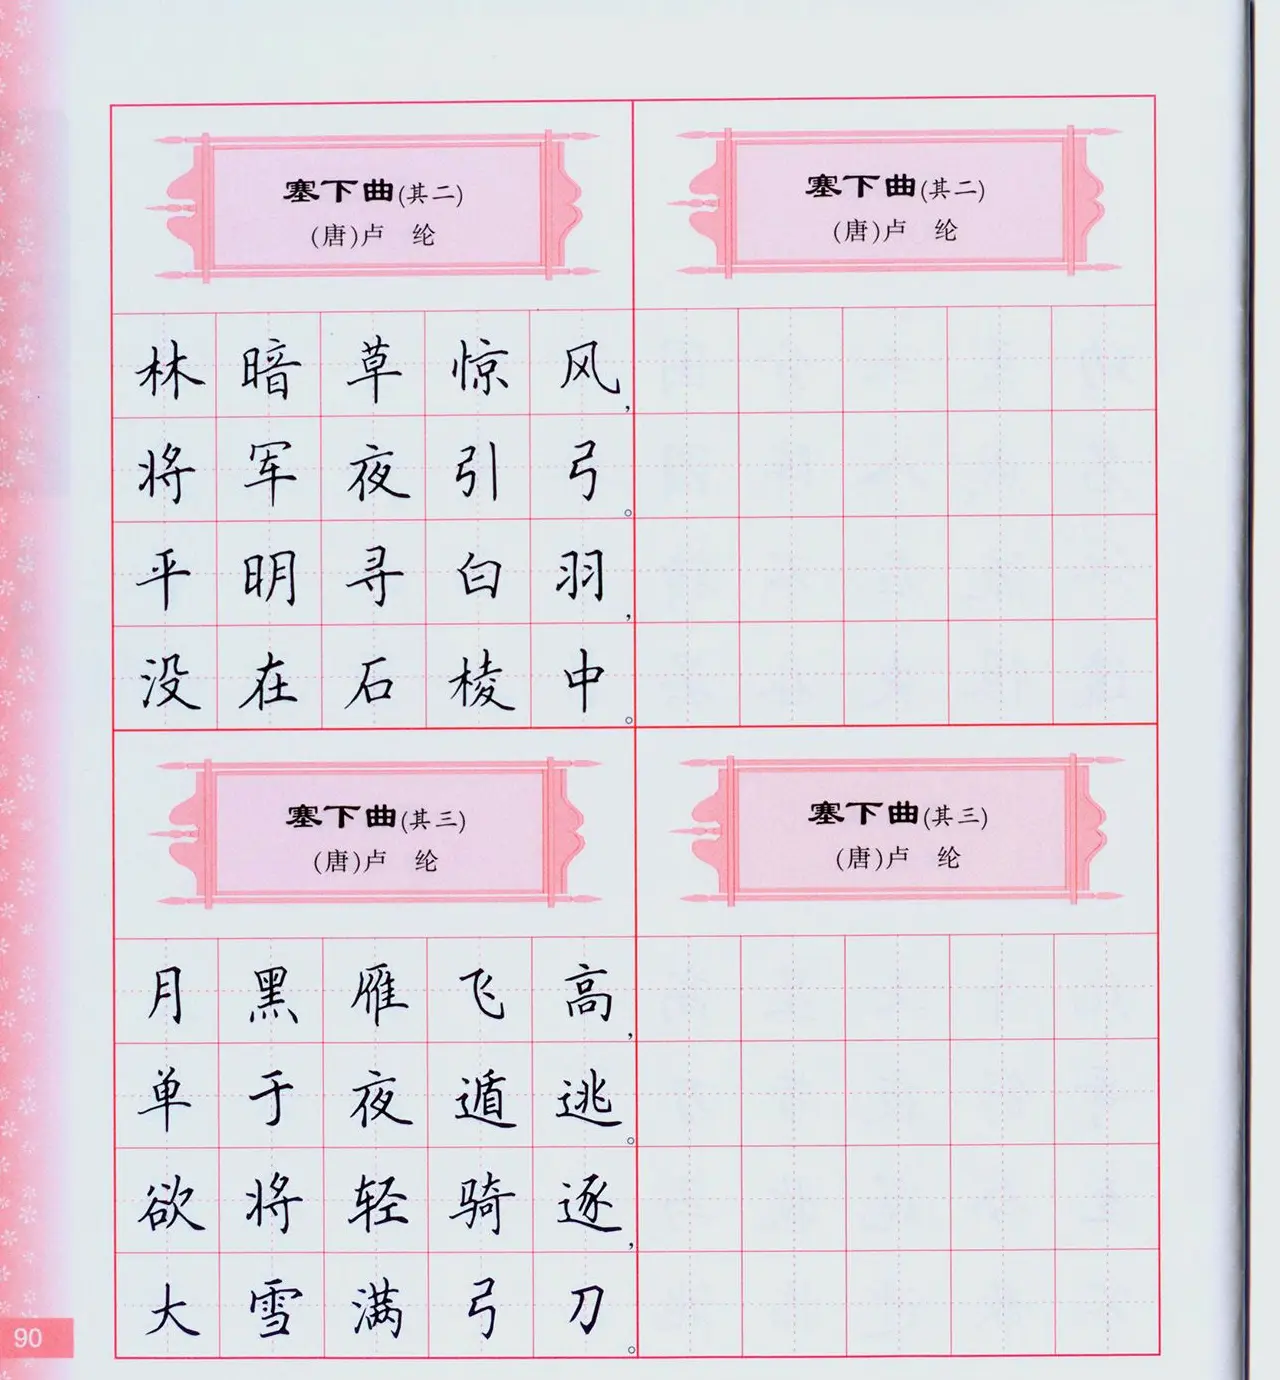 塞下曲(其二)
(唐)卢 纶
林暗草惊风,
将军夜引弓。
平明寻白羽,
没在石棱中。
塞下曲(其二)
(唐)卢 纶
塞下曲(其三)
(唐)卢 纶
月黑雁飞高,
单于夜遁逃。
欲将轻骑逐,
大雪满弓刀。
塞下曲(其三)
(唐)卢 纶
90